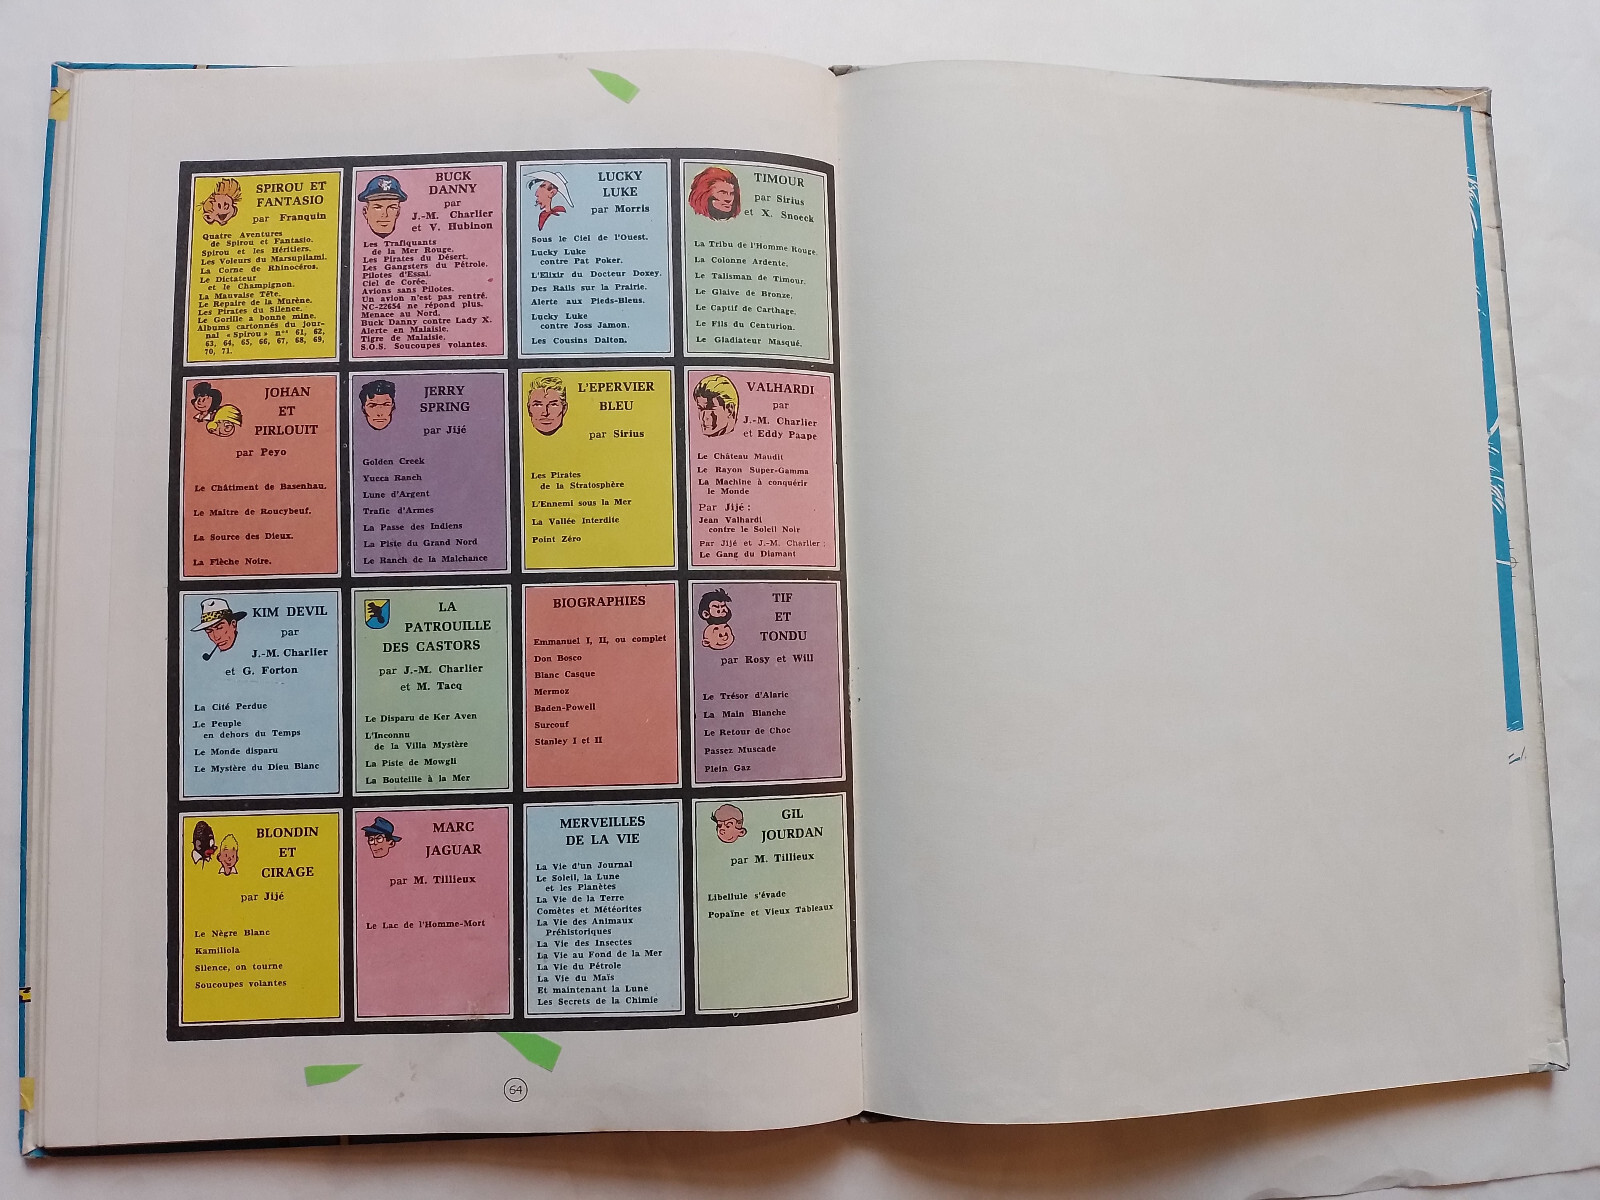 SPIROU ET
FANTASIO
par Franquin
Quatre Aventures
de Spirou et Fantasio.
Spirou et les Héritiers.
Les Voleurs du Marsupilami.
La Corne de Rhinocéros.
Le Dictateur
et le Champignon.
La Mauvaise Tête.
Le Repaire de la Murène.
Les Pirates du Silence.
Le Gorille a bonne mine.
Albums cartonnés du jour-
nal «Spirou» nos 61, 62,
63, 64, 65, 66, 67, 68, 69,
70, 71.
BUCK
DANNY
par
J.-M. Charlier
et V. Hubinon
Les Trafiquants
de la Mer Rouge.
Les Pirates du Désert.
Les Gangsters du Pétrole.
Pilotes d'Essai.
Ciel de Corée.
Avions sans Pilotes.
Un avion n'est pas rentré.
NC-22654 ne répond plus.
Menace au Nord.
Buck Danny contre Lady X.
Alerte en Malaisie.
Tigre de Malaisie.
S.O.S. Soucoupes volantes.
LUCKY
LUKE
par Morris
Sous le Ciel de l'Ouest.
Lucky Luke
contre Pat Poker.
L'Elixir du Docteur Doxey.
Des Rails sur la Prairie.
Alerte aux Pieds-Bleus.
Lucky Luke
contre Joss Jamon.
Les Cousins Dalton.
TIMOUR
par Sirius
et X. Snoeck
La Tribu de l'Homme Rouge.
La Colonne Ardente.
Le Talisman de Timour.
Le Glaive de Bronze.
Le Captif de Carthage.
Le Fils du Centurion.
Le Gladiateur Masqué.
JOHAN
ET
PIRLOUIT
par Peyo
Le Châtiment de Basenhau.
Le Maître de Roucybeuf.
La Source des Dieux.
La Flèche Noire.
JERRY
SPRING
par Jijé
Golden Creek
Yucca Ranch
Lune d'Argent
Trafic d'Armes
La Passe des Indiens
La Piste du Grand Nord
Le Ranch de la Malchance
L'EPERVIER
BLEU
par Sirius
Les Pirates
de la Stratosphère
L'Ennemi sous la Mer
La Vallée Interdite
Point Zéro
VALHARDI
par
J.-M. Charlier
et Eddy Paape
Le Château Maudit
Le Rayon Super-Gamma
La Machine à conquérir
le Monde
Par Jijé :
Jean Valhardi
contre le Soleil Noir
Par Jijé et J.-M. Charlier :
Le Gang du Diamant
KIM DEVIL
par
J.-M. Charlier
et G. Forton
La Cité Perdue
Le Peuple
en dehors du Temps
Le Monde disparu
Le Mystère du Dieu Blanc
LA
PATROUILLE
DES CASTORS
par J.-M. Charlier
et M. Tacq
Le Disparu de Ker Aven
L'Inconnu
de la Villa Mystère
La Piste de Mowgli
La Bouteille à la Mer
BIOGRAPHIES
Emmanuel I, II, ou complet
Don Bosco
Blanc Casque
Mermoz
Baden-Powell
Surcouf
Stanley I et II
TIF
ET
TONDU
par Rosy et Will
Le Trésor d'Alaric
La Main Blanche
Le Retour de Choc
Passez Muscade
Plein Gaz
BLONDIN
ET
CIRAGE
par Jijé
Le Nègre Blanc
Kamiliola
Silence, on tourne
Soucoupes volantes
MARC
JAGUAR
par M. Tillieux
Le Lac de l'Homme-Mort
MERVEILLES
DE LA VIE
La Vie d'un Journal
Le Soleil, la Lune
et les Planètes
La Vie de la Terre
Comètes et Météorites
La Vie des Animaux
Préhistoriques
La Vie des Insectes
La Vie au Fond de la Mer
La Vie du Pétrole
La Vie du Maïs
Et maintenant la Lune
Les Secrets de la Chimie
GIL
JOURDAN
par M. Tillieux
Libellule s'évade
Popaïne et Vieux Tableaux
64